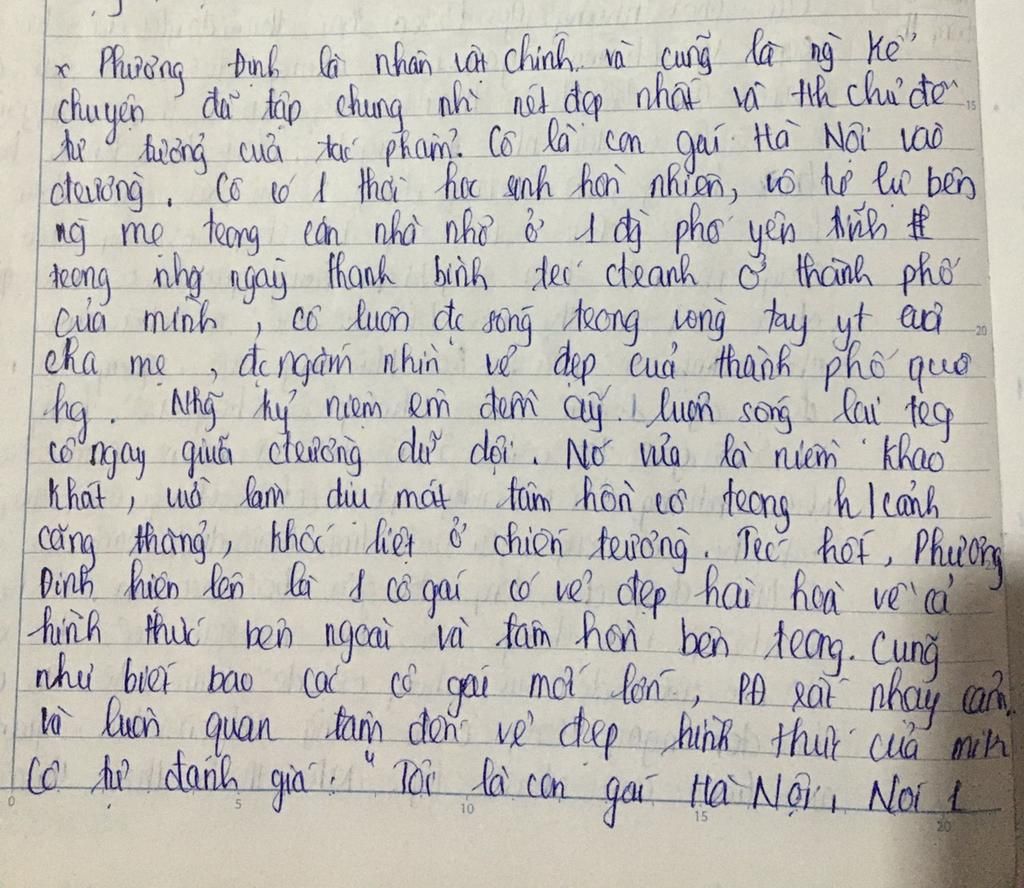 x Phương Định là nhân vật chính và cũng là ng kể
chuyện đã tập chung nh nét đẹp nhất và chủ đề
tư tưởng của tác phẩm. Cô là con gái Hà Nội vào
ctrường. Cô có 1 thời học sinh hồn nhiên, vô tư lự bên
ng mẹ trong căn nhà nhỏ ở 1 đg phố yên tĩnh
trong nhg ngày thanh bình trc ctranh ở thành phố
của mình, cô luôn đc sống trong vòng tay yt của
cha mẹ, đc ngắm nhìn vẻ đẹp của thành phố quê
hg. Nhg kỷ niệm êm đềm ấy luôn sống lại trg
cô ngay giữa ctrường dữ dội. Nó vừa là niềm khao
khát, vừa làm dịu mát tâm hồn cô trong h/cảnh
căng thẳng, khốc liệt ở chiến trường. Trc hết, Phương
Định hiện lên là 1 cô gái có vẻ đẹp hài hoà về cả
hình thức bên ngoài và tâm hồn bên trong. Cũng
như biết bao các cô gái mới lớn, PĐ rất nhạy cảm
và luôn quan tâm đến vẻ đẹp hình thức của mình
Cô tự đánh giá: "Tôi là con gái Hà Nội, Nói 1